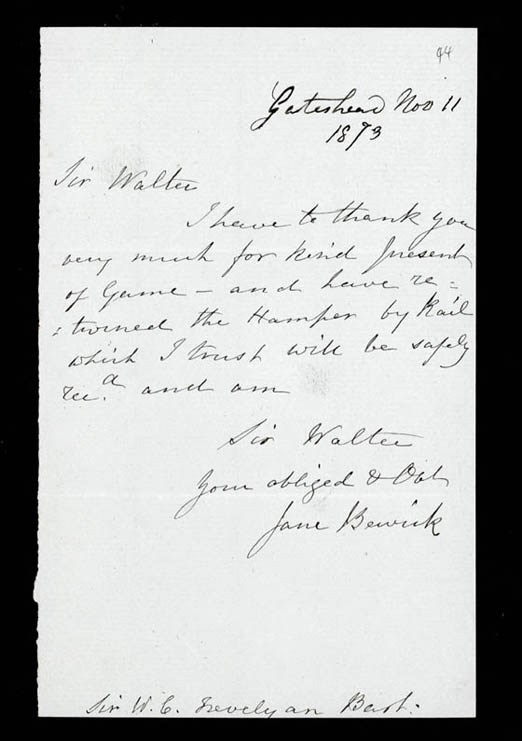 94
Gateshead Nov 11
1873
Sir Walter
I have to thank you
very much for kind present
of Game – and have re=
=turned the Hamper by Rail
which I trust will be safely
rec.d and am
Sir Walter
Your obliged & Obt
Jane Bewick
Sir W. C. Trevelyan Bart: